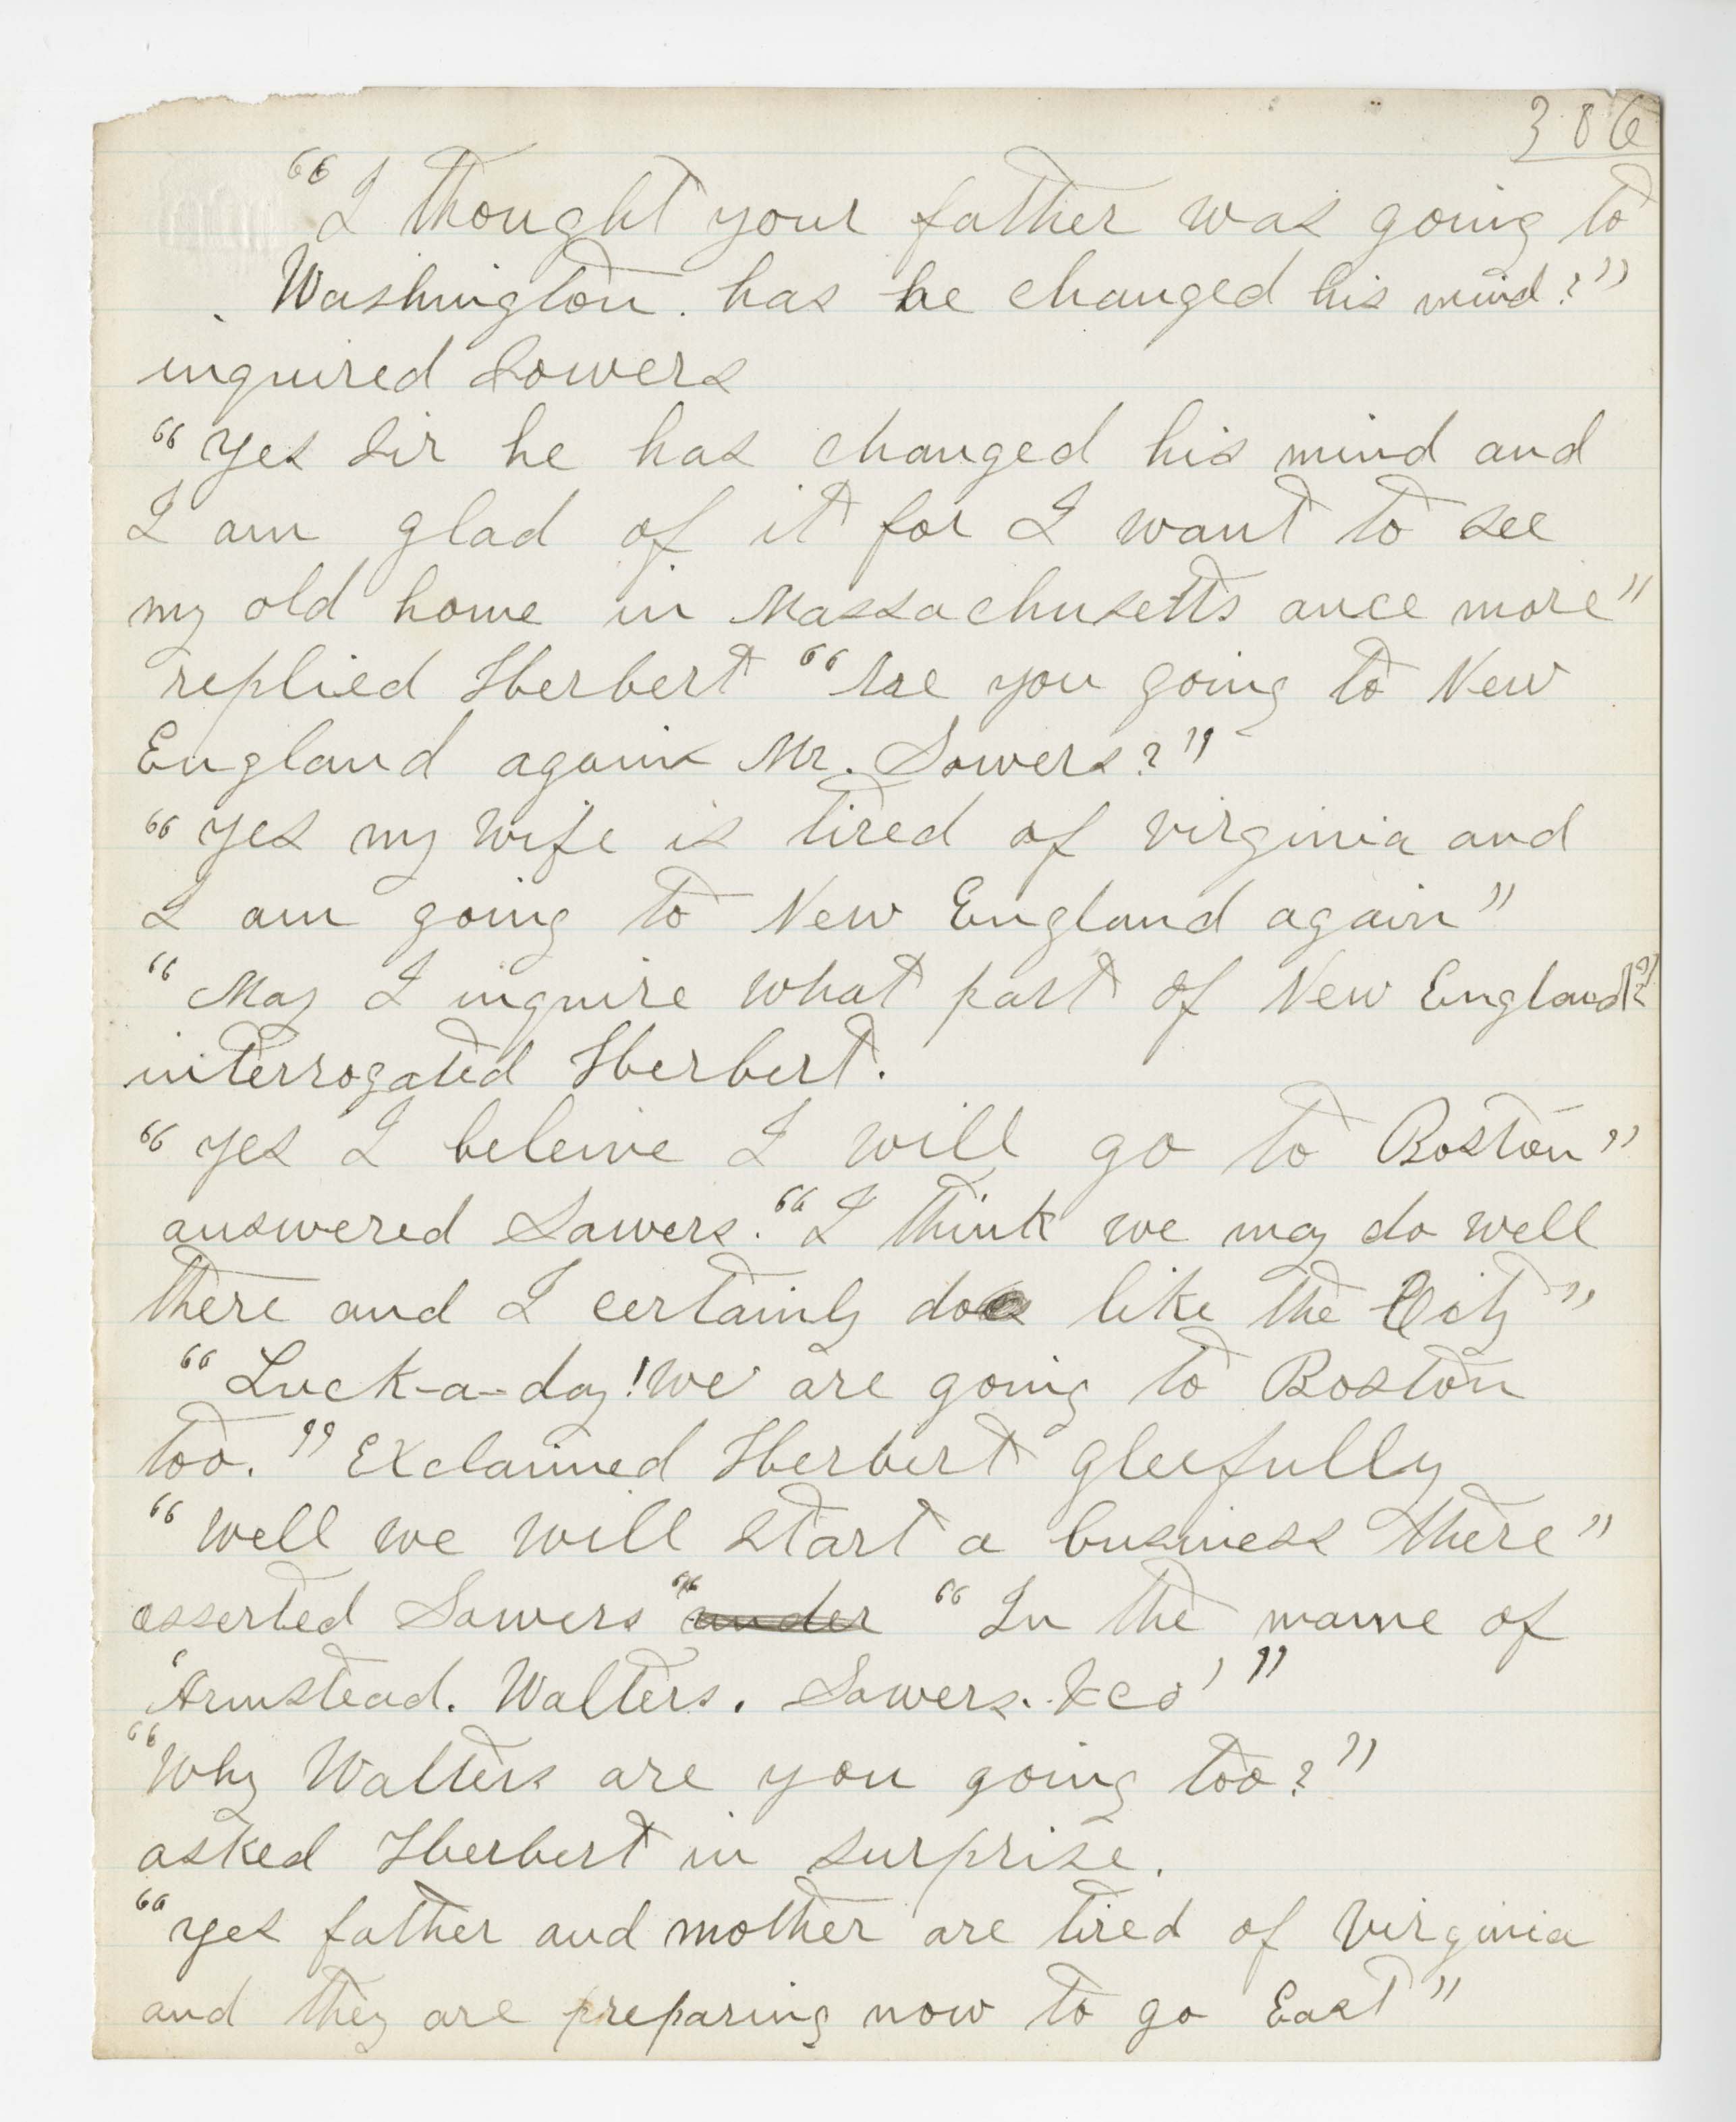 386
“I thought your father was going to
Washington. has he changed his mind?”
inquired Sowers
“Yes Sir he has changed his mind and
I am glad of it for I want to see
my old home in Massachusetts once more”
replied Herbert “Are you going to New
England again Mr. Sowers?”
“Yes my wife is tired of virginia and
I am going to New England again”
“May I inquire what part of New England?”
interrogated Herbert.
“Yes I beleive I will go to Boston”
answered Sowers. “I think we may do well
there and I certainly do like the City”
“Luck-a-day! we are going to Boston
too.” Exclaimed Herbert gleefully
“Well we will start a business there”
asserted Sowers “under “In the name of
‘Armstead. Walters. Sowers. & Co’”
“Why Walters are you going too?”
asked Herbert in surprise.
“Yes father and mother are tired of Virginia
and they are preparing now to go East”